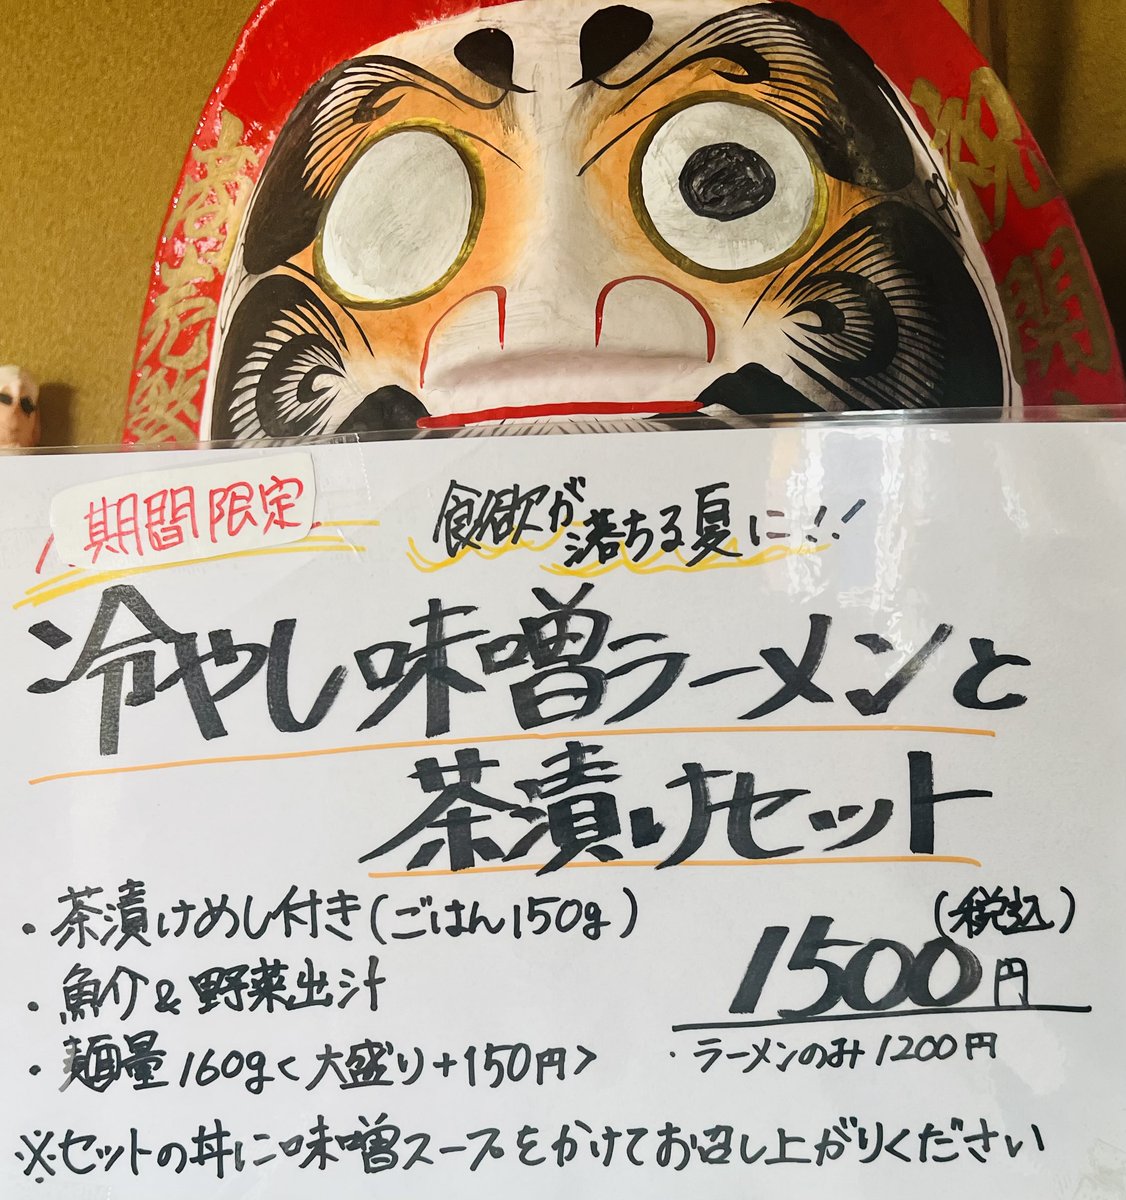 商売繁
祝開
期間限定
食欲が落ちる夏に!!
冷やし味噌ラーメンと
茶漬けセット
・茶漬けめし付き(ごはん150g)
・魚介&野菜出汁
・麺量160g<大盛り+150円>
(税込)
1500円
・ラーメンのみ1200円
※セットの丼に味噌スープをかけてお召し上がりください